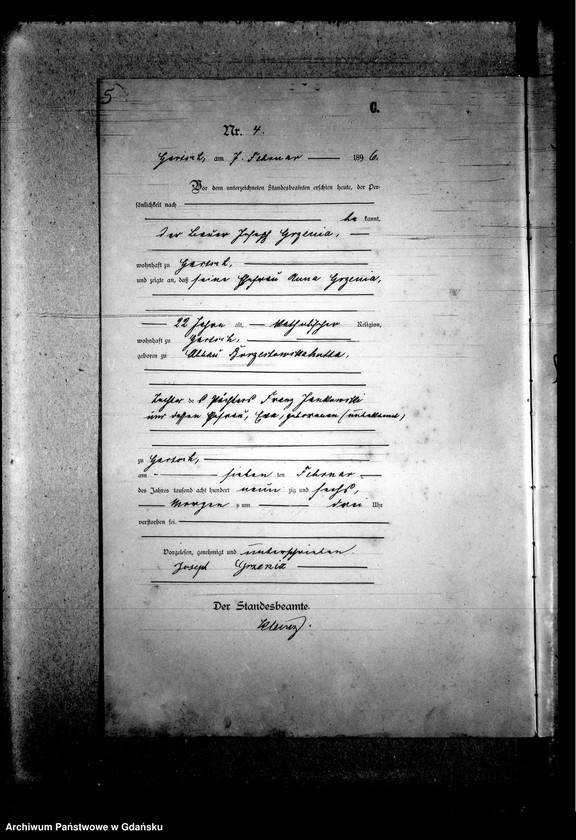 5
C.
Nr. 4.
am 7. Februar 1896.
Vor dem unterzeichneten Standesbeamten erschien heute, der Per-
sönlichkeit nach
bekannt,
der Bauer Joseph Grzenia,
wohnhaft zu
und zeigte an, daß seine Ehefrau Anna Grzenia,
22 Jahre alt, katholischer Religion,
wohnhaft zu
geboren zu
Tochter des Pächters Franz Jankowski
und dessen Ehefrau, Eva, geborenen (unbekannt)
zu
am sieben ten Februar
des Jahres tausend acht hundert neun zig und sechs,
Morgens um drei Uhr
verstorben sei.
Vorgelesen, genehmigt und unterschrieben
Joseph Grzenia
Der Standesbeamte.
Archiwum Państwowe w Gdańsku